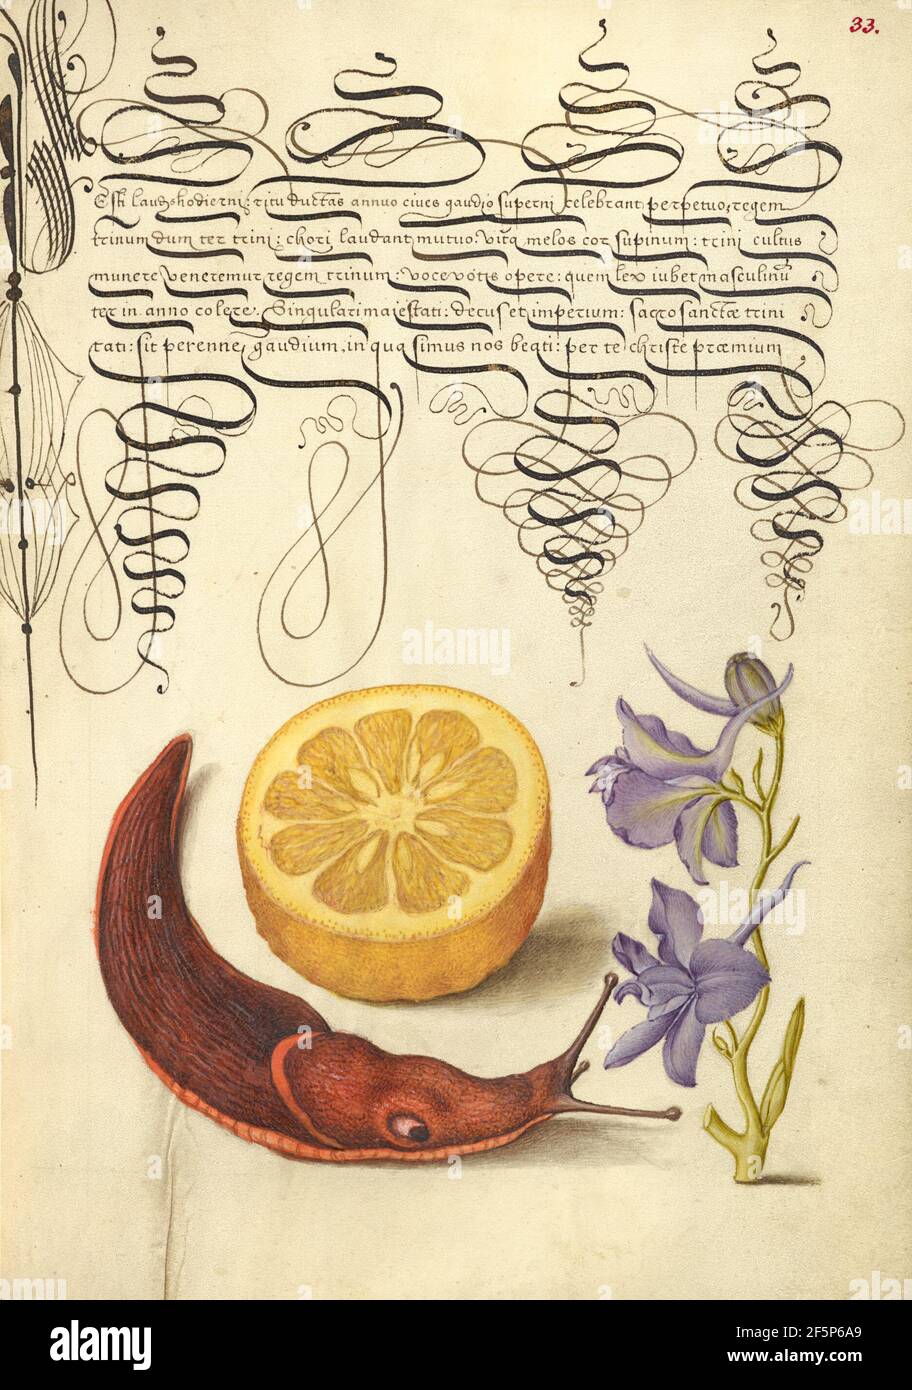 33.
Est laus hodierni: ritu ductas annuo cives gaudio superni celebrant perpetuo, regem
trinum dum ter trini: chori laudant mutuo. Vita melos cor supinum: trini cultus
munere veneremur regem trinum: voce votis opere: quem lex iubet masculinū
ter in anno colere. Singulari maiestati: decus et imperium: sacro sanctæ trini
tati: sit perenne gaudium, in qua simus nos beati: per te christe præmium
alamy
alamy
Image ID: 2F5P6A9
www.alamy.com